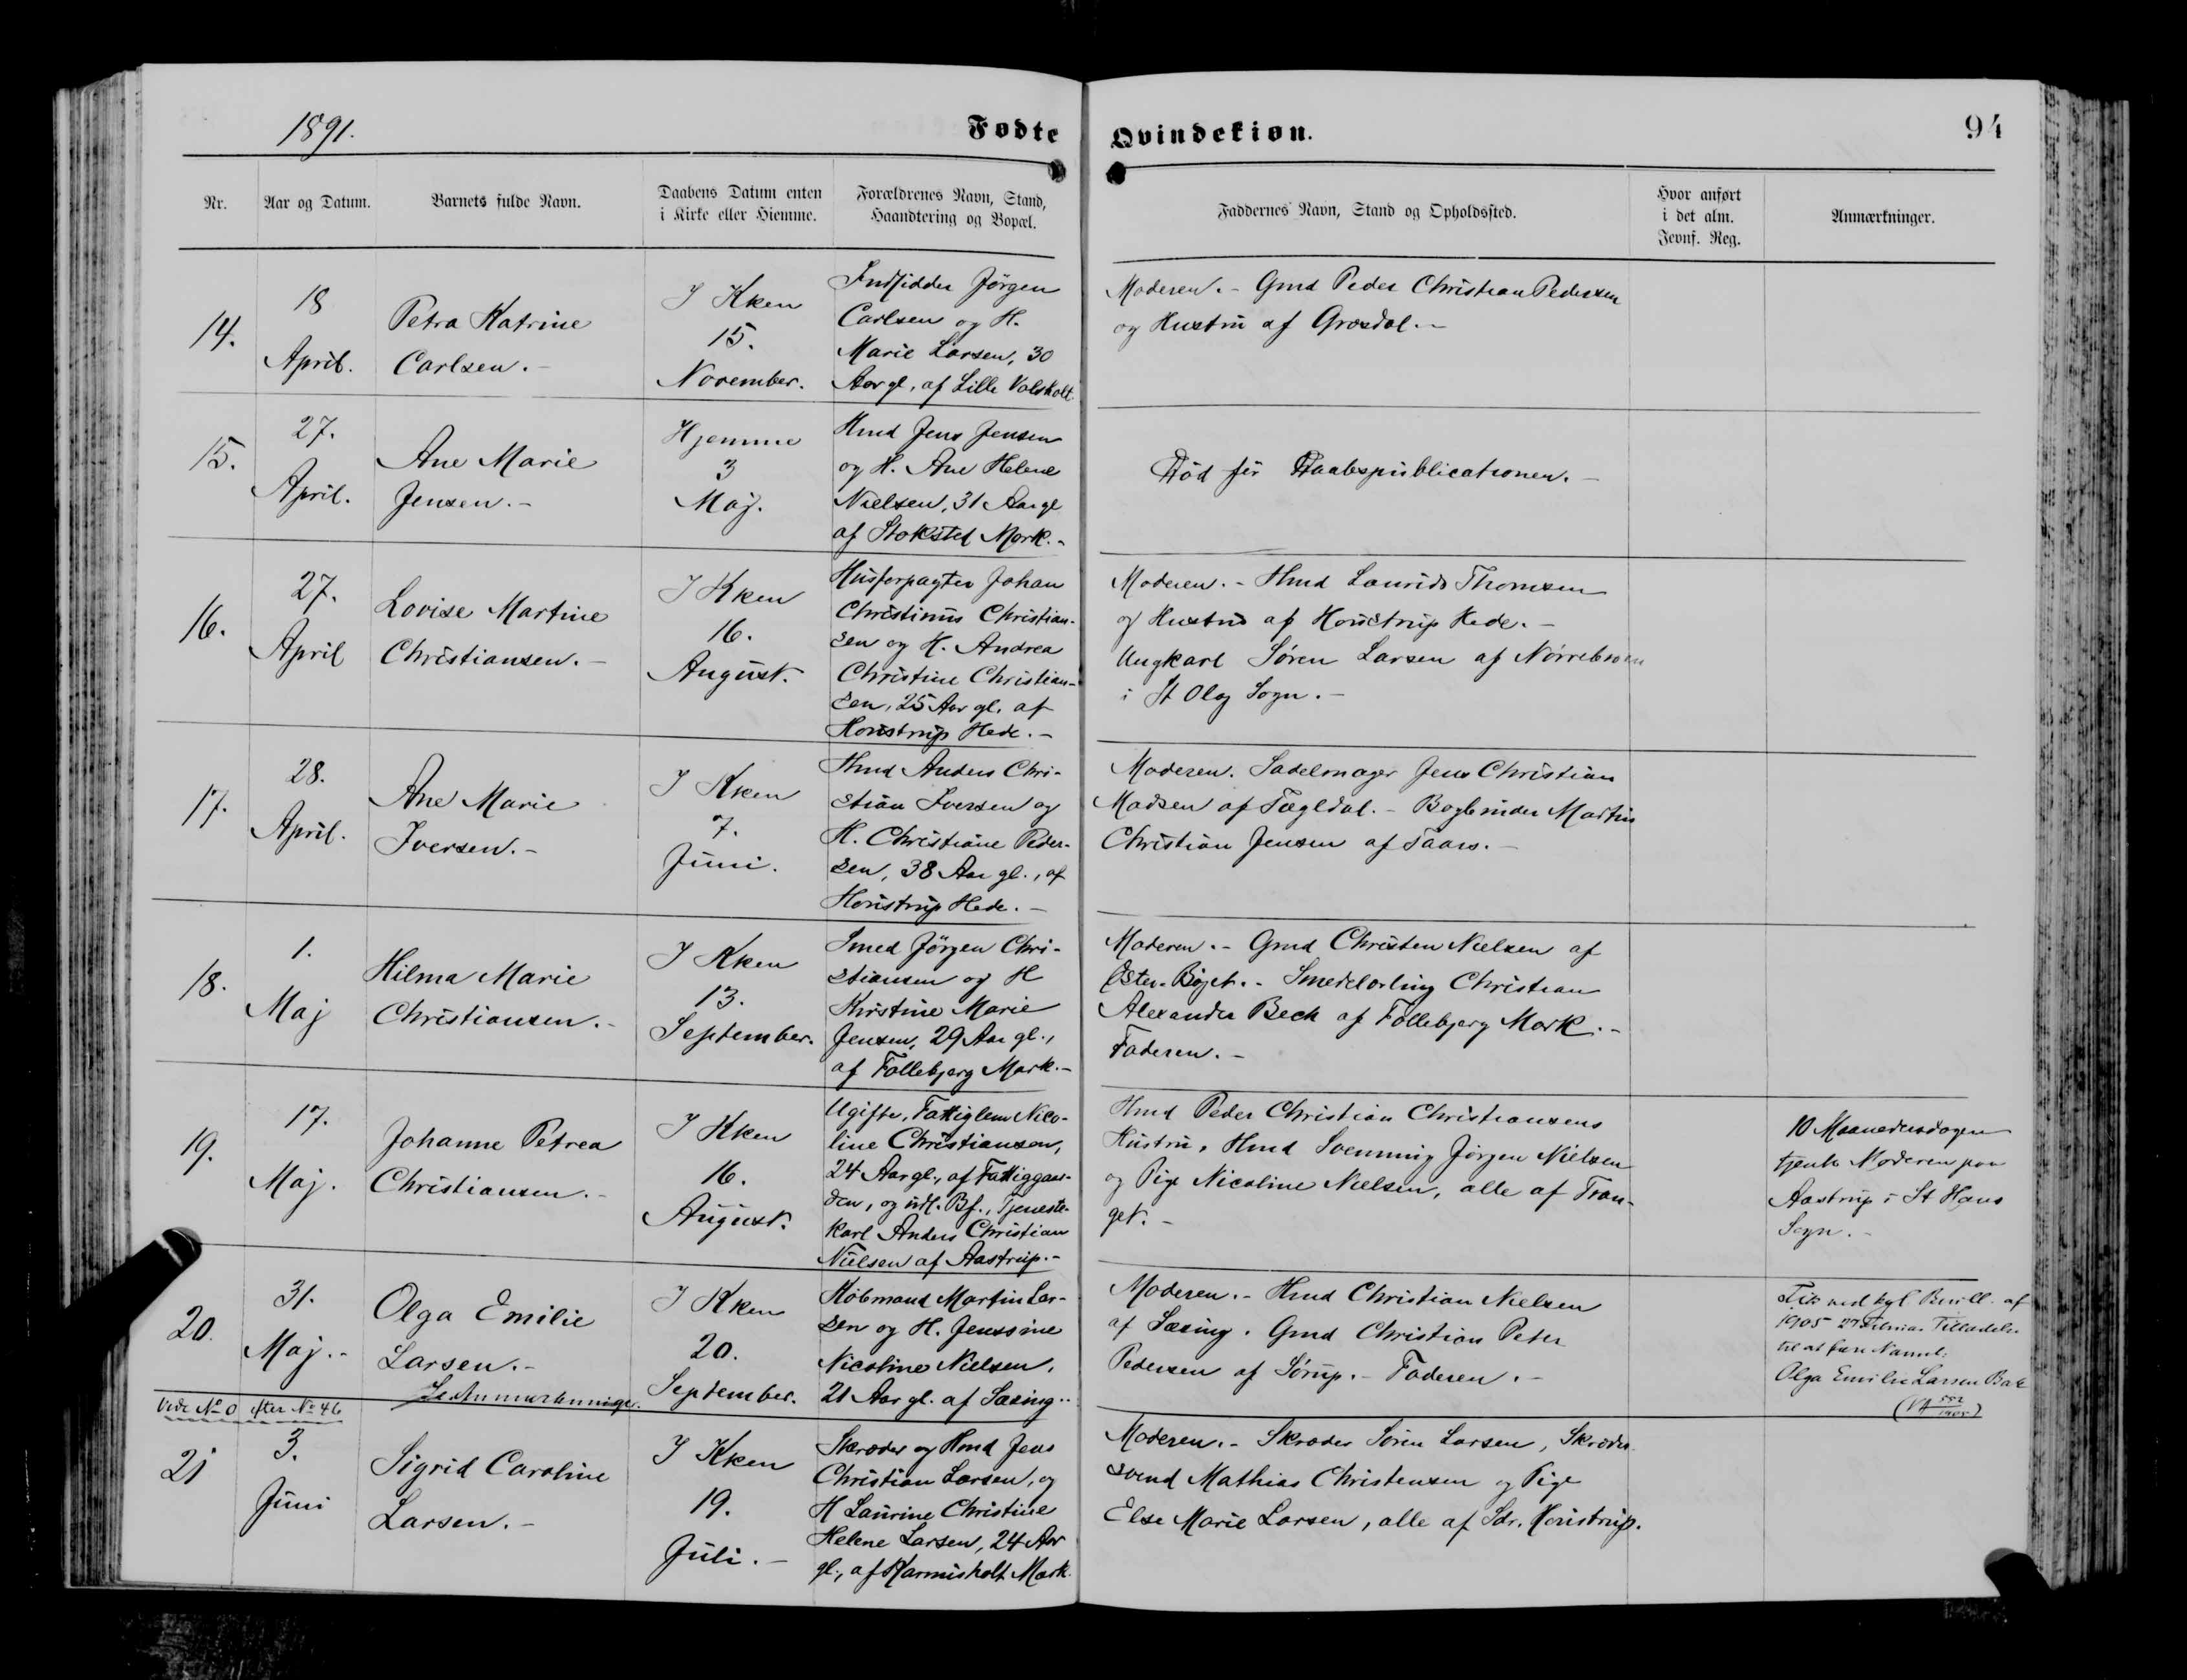 1891.
Fødte Qvindekiøn.
94
Nr.
Aar og Datum.
Barnets fulde Navn.
Daabens Datum enten
i Kirke eller Hiemme.
Forældrenes Navn, Stand,
Haandtering og Bopæl.
Faddernes Navn, Stand og Opholdssted.
Hvor anført
i det alm.
Jevnf. Reg.
Anmærkninger.
14.
18
April.
Petra Katrine
Carlsen.-
I Kken
15.
November.
Indsidder Jørgen
Carlsen og H.
Marie Larsen, 30
Aar gl., af Lille Volstholt
Moderen.- Gmd Peder Christian Pedersen
og Hustru af Græsdal.-
15.
27.
April.
Ane Marie
Jensen.-
Hjemme
3
Maj.
Hmd Jens Jensen
og H. Ane Helene
Nielsen, 31 Aar gl
af Stoksted Mark.-
Død før Daabspublicationen.-
16.
27.
April
Lovise Martine
Christiansen.-
I Kken
16.
August.
Husforpagter Johan
Christinus Christian-
sen og H. Andrea
Christine Christian-
sen, 25 Aar gl. af
Houstrup Hede.-
Moderen.- Hmd Laurids Thomsen
og Hustru af Houstrup Hede.-
Ungkarl Søren Larsen af Nørrebroen
i St Olaj Sogn.-
17.
28.
April.
Ane Marie
Iversen.-
I Kken
7.
Juni.
Hmd Anders Chri-
stian Iversen og
H. Christiane Peder-
sen, 38 Aar gl., af
Houstrup Hede.-
Moderen. Sadelmager Jens Christian
Madsen af Tægldal.- Bogbinder Martin
Christian Jensen af Taars.-
18.
1.
Maj
Hilma Marie
Christiansen.-
I Kken
13.
September.
Smed Jørgen Chri-
stiansen og H
Kirstine Marie
Jensen, 29 Aar gl.,
af Follebjerg Mark.-
Moderen.- Gmd Christen Nielsen af
Øster-Bøjet.- Smedelærling Christian
Alexander Beck af Follebjerg Mark.-
Faderen.-
19.
17.
Maj.
Johanne Petrea
Christiansen.-
I Kken
16.
August.
Ugifte, Fattiglem Nico-
line Christiansen,
24 Aar gl., af Fattiggaar-
den, og udl. Bf., Tjeneste-
karl Anders Christian
Nielsen af Aastrup.-
Hmd Peder Christian Christiansens
Hustru, Hmd Svenning Jørgen Nielsen
og Pige Nicoline Nielsen, alle af Tran-
get.-
10 Maanedersdagen
tjente Moderen paa
Aastrup i St Hans
Sogn.-
20.
31.
Maj.-
Olga Emilie
Larsen.-
Se Anmærkninger.
I Kken
20.
September.
Købmand Martin Lar-
sen og H. Jenssine
Nicoline Nielsen,
21 Aar gl. af Sæsing.-
Moderen.- Hmd Christian Nielsen
af Sæsing. Gmd Christian Peter
Pedersen af Sørup.- Faderen.-
Fik ved kgl. Bevill. af
1905 27 Februar Tilladelse
til at føre Navnet:
Olga Emilie Larsen Bak
Vide No 0 efter No 46
21
3.
Juni
Sigrid Caroline
Larsen.-
I Kken
19.
Juli.-
Skræder og Hmd Jens
Christian Larsen, og
H Laurine Christine
Helene Larsen, 24 Aar
gl., af Karmisholt Mark.
Moderen.- Skræder Søren Larsen, Skræder-
svend Mathias Christensen og Pige
Else Marie Larsen, alle af Sdr. Houstrup.